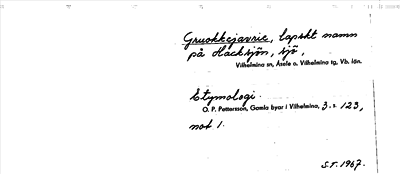 Gruokkejaurie, lapskt namn
på Hacksjön, sjö,
Vilhelmina sn, Åsele o. Vilhelmina tg, Vb. län.
Etymologi.
O. P. Pettersson, Gamla byar i Vilhelmina, 3. s. 123,
not 1.
S.T. 1967.